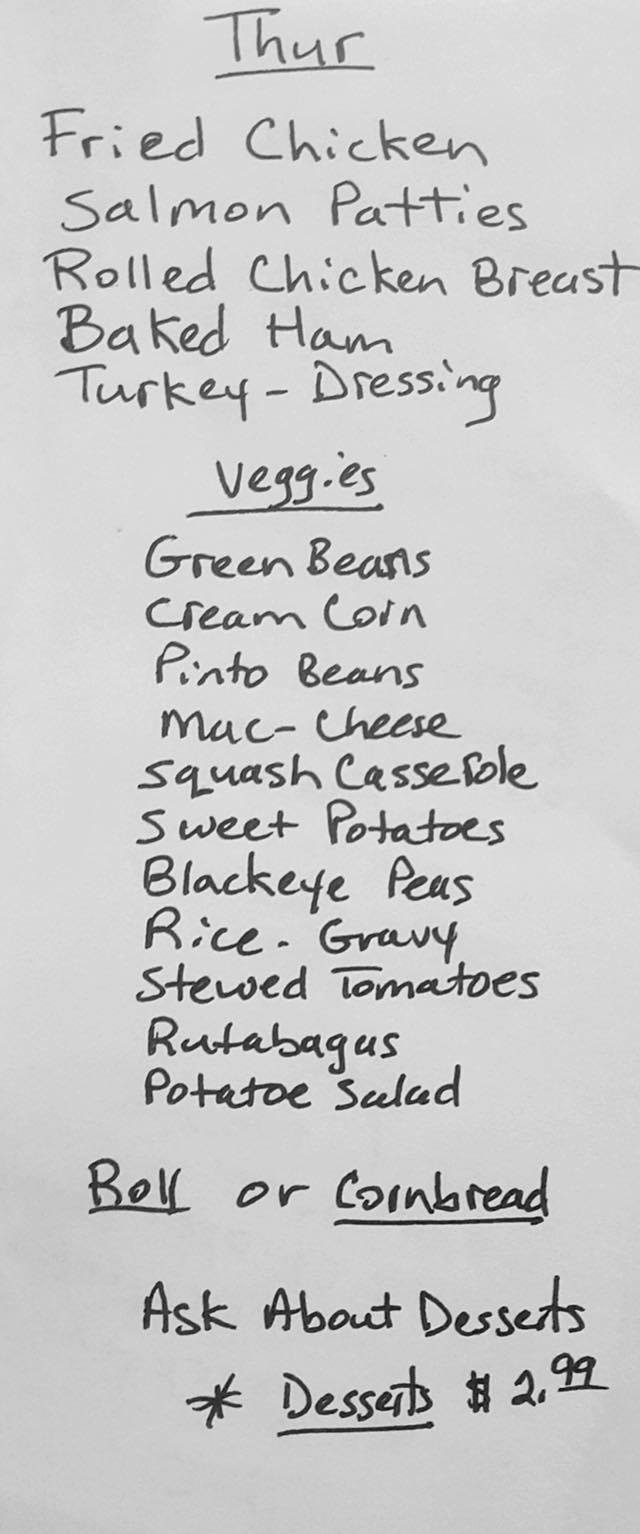 Thur
Fried Chicken
Salmon Patties
Rolled Chicken Breast
Baked Ham
Turkey - Dressing
Veggies
Green Beans
Cream Corn
Pinto Beans
Mac- Cheese
Squash Casserole
Sweet Potatoes
Blackeye Peas
Rice - Gravy
Stewed Tomatoes
Rutabagas
Potatoe Salad
Roll or Cornbread
Ask About Desserts
* Desserts $ 2.99